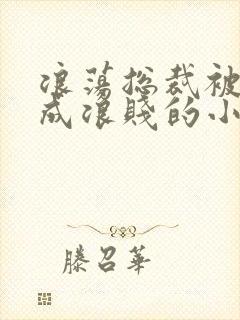 浪蕩总裁被
成浪賤的小
滕召華